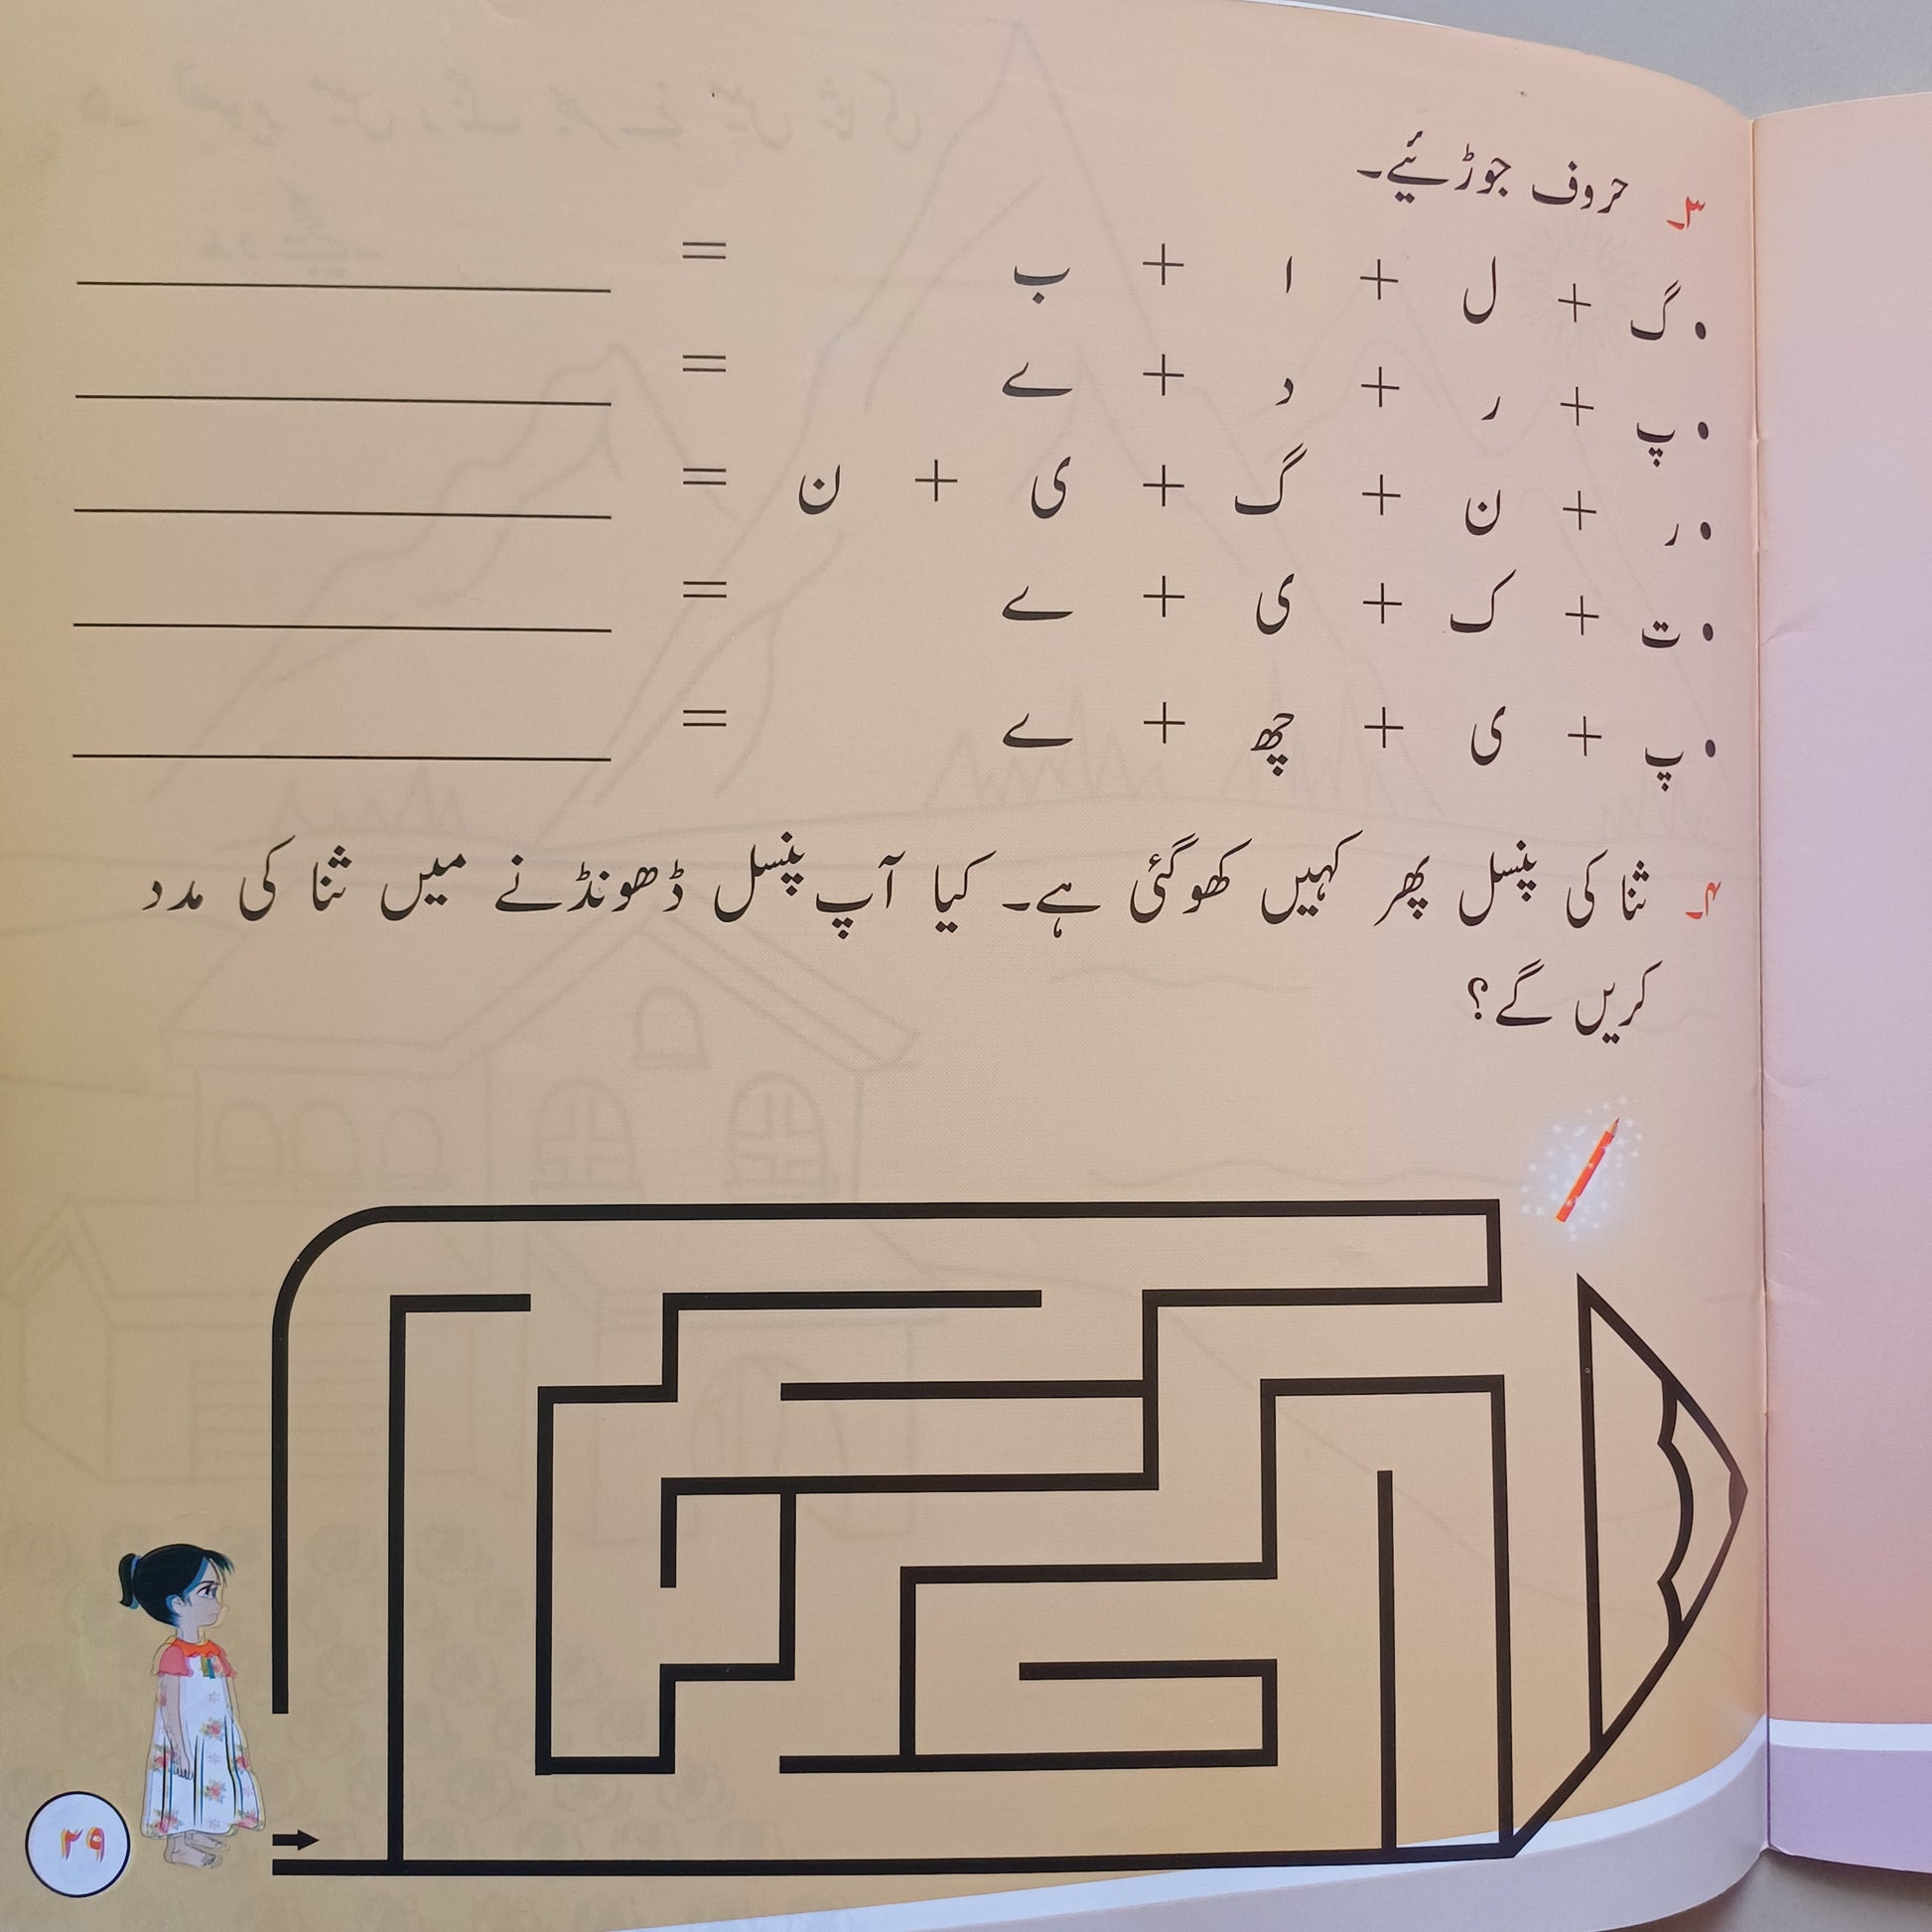 ۳۔ حروف جوڑئیے۔
• گ + ل + ا + ب =
• پ + ر + د + ے =
• ر + ن + گ + ی + ن =
• ت + ک + ی + ے =
• پ + ی + چھ + ے =
۴۔ ثنا کی پنسل پھر کہیں کھو گئی ہے۔ کیا آپ پنسل ڈھونڈنے میں ثنا کی مدد
کریں گے؟
۲۹